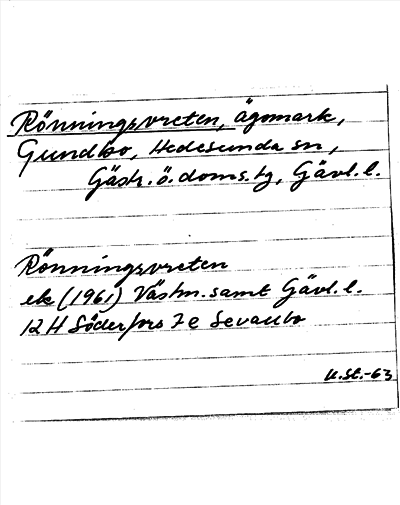 Rönningsvreten, ägomark,
Gundbo, Hedesunda sn,
Gästr. ö. doms.tg, Gävl. l.
Rönningsvreten
ek (1961) Västm. samt Gävl. l.
12 H Söderfors 7 e Sevallbo
U.St.-63